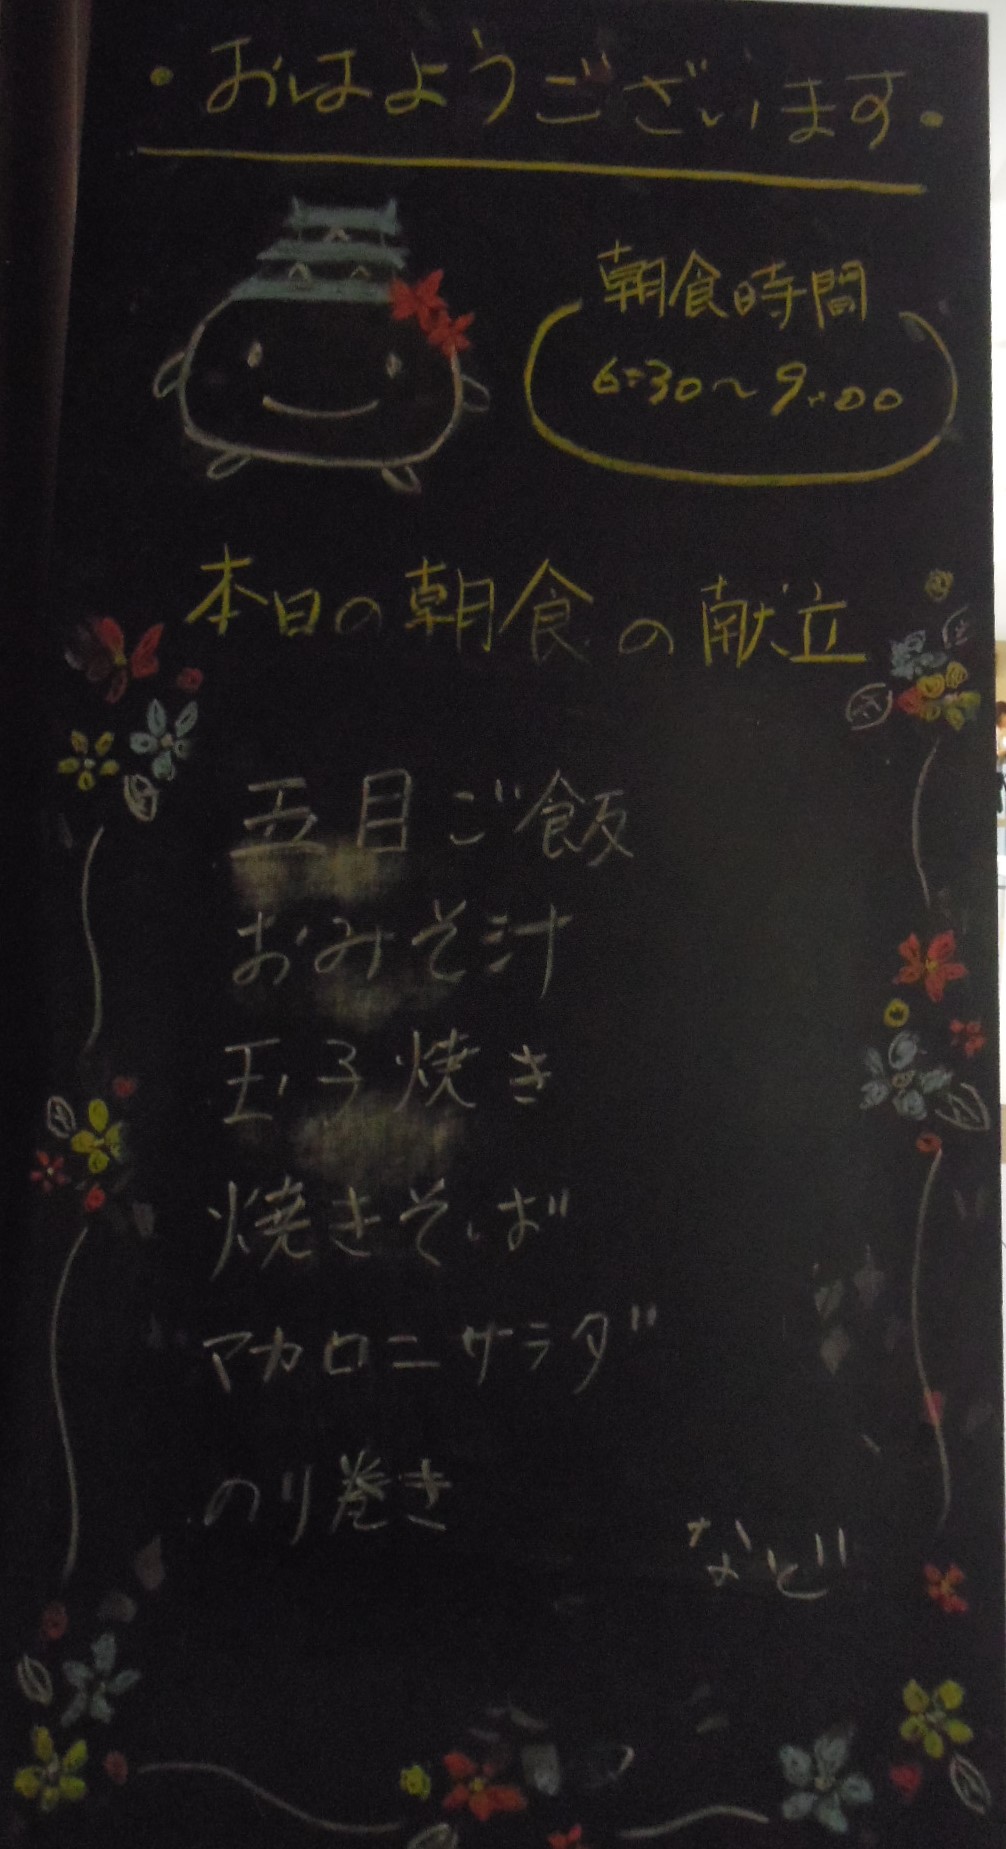 ・おはようございます・
朝食時間
6:30〜9:00
本日の朝食の献立
五目ご飯
おみそ汁
玉子焼き
焼きそば
マカロニサラダ
のり巻き
など